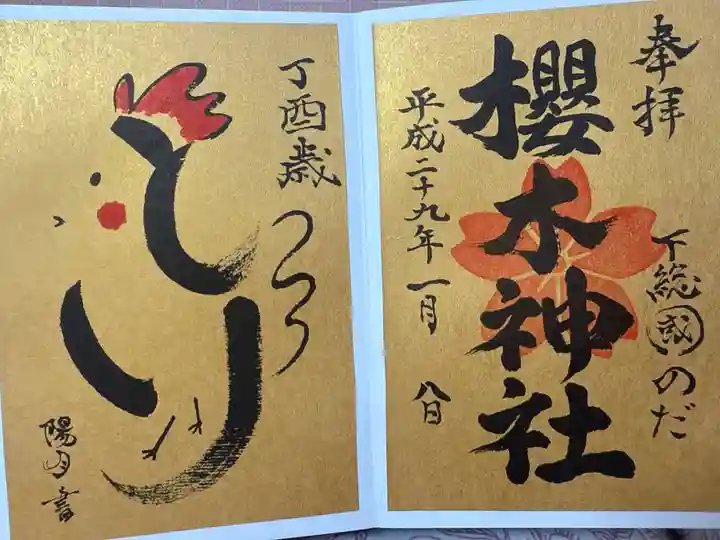 奉拝
下総國のだ
櫻木神社
平成二十九年一月八日
丁酉歳
とり
陽月書